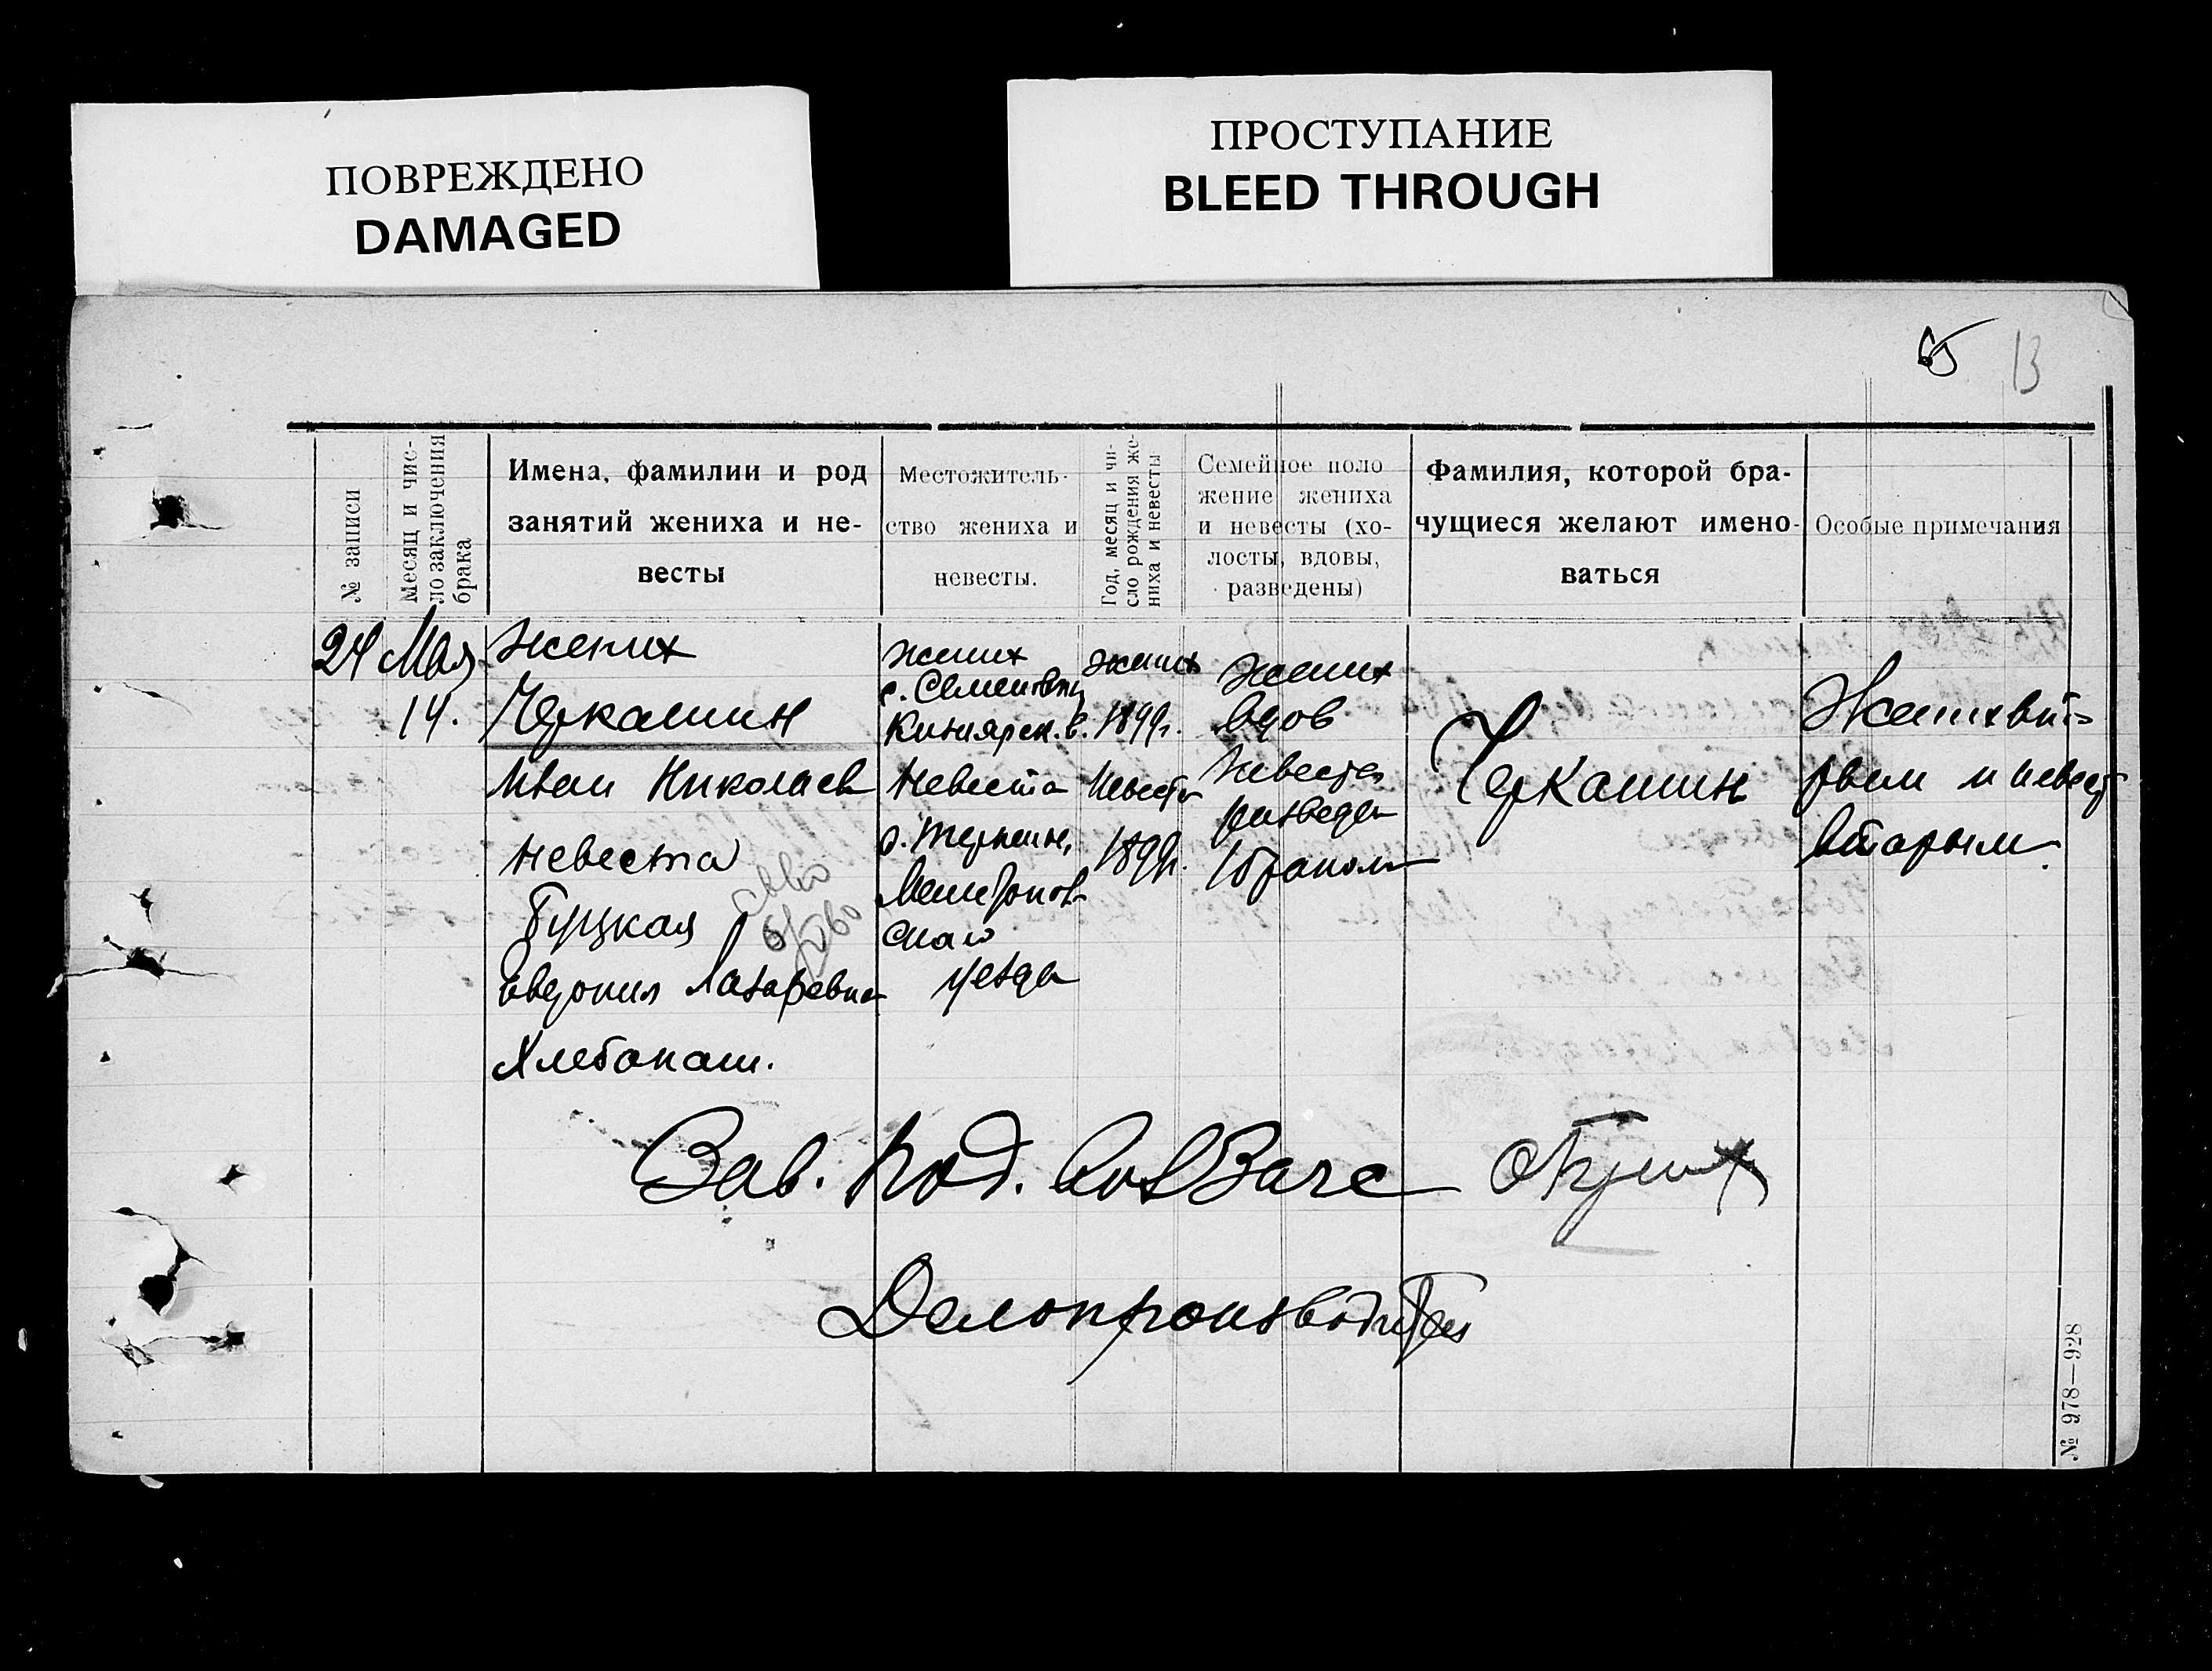 ПОВРЕЖДЕНО
DAMAGED
ПРОСТУПАНИЕ
BLEED THROUGH
13
№ записи
Месяц и чис-
ло заключения
брака
Имена, фамилии и род
занятий жениха и не-
весты
Местожитель-
ство жениха и
невесты.
Год, месяц и чи-
сло рождения же-
ниха и невесты
Семейное поло
жение жениха
и невесты (хо-
лосты, вдовы,
разведены)
Фамилия, которой бра-
чущиеся желают имено-
ваться
Особые примечания
24
Мая
14.
жених
Черкашин
Иван Николаев
Невеста
Гуцкая
Евдокия Лазаревна
Хлебопаш.
жених
с. Семеновки
Кизиярск. в.
Невеста
уезда
жених
1899г.
Невеста
1899г.
жених
вдов
Невеста
разведен
1 браком
Черкашин
Жених вто-
рым и невест
вторым.
Зав. Под. ЗАГС
Делопроизводитель
№ 978—928